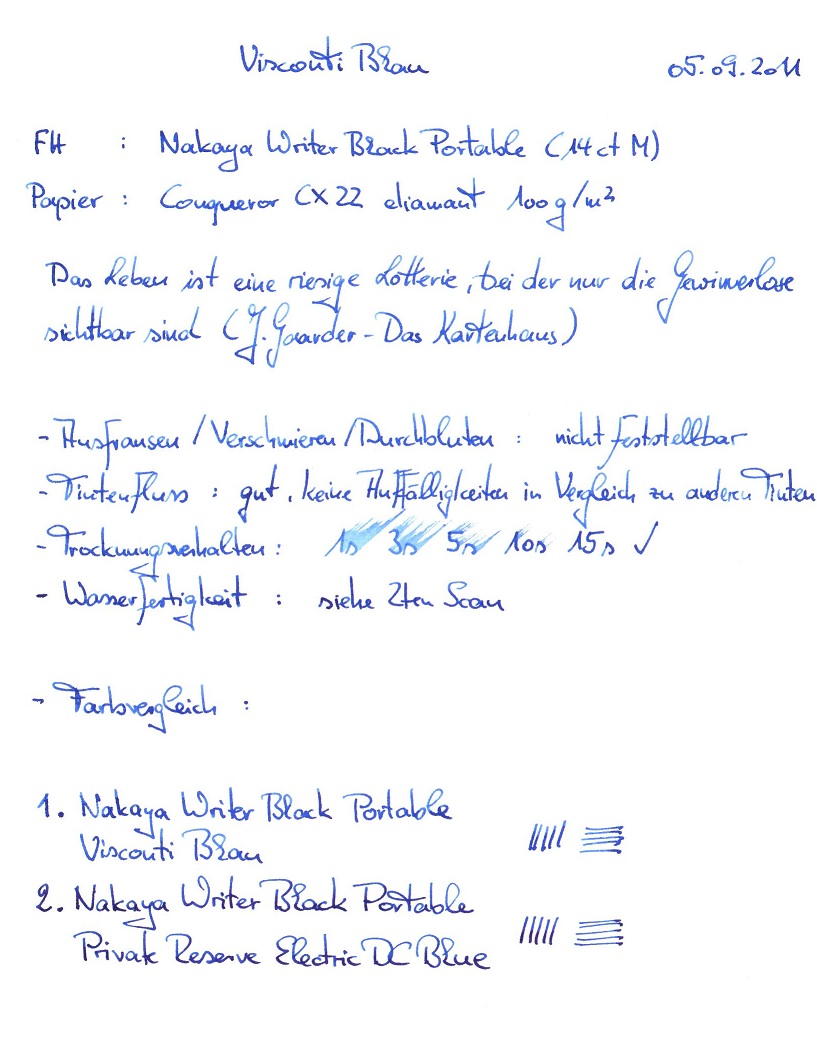 Visconti Blau 05.09.2011
FH : Nakaya Writer Black Portable (14ct M)
Papier : Conqueror CX22 diamant 100g/m²
Das Leben ist eine riesige Lotterie, bei der nur die Gewinnerlose
sichtbar sind (J. Gaarder - Das Kartenhaus)
- Ausfransen / Verschmieren / Durchbluten : nicht feststellbar
- Tintenfluss : gut, keine Auffälligkeiten in Vergleich zu anderen Tinten
- Trocknungsverhalten : 1s 3s 5s 10s 15s ✓
- Wasserfertigkeit : siehe 2ten Scan
- Farbvergleich :
1. Nakaya Writer Black Portable
Visconti Blau
2. Nakaya Writer Black Portable
Private Reserve Electric DC Blue